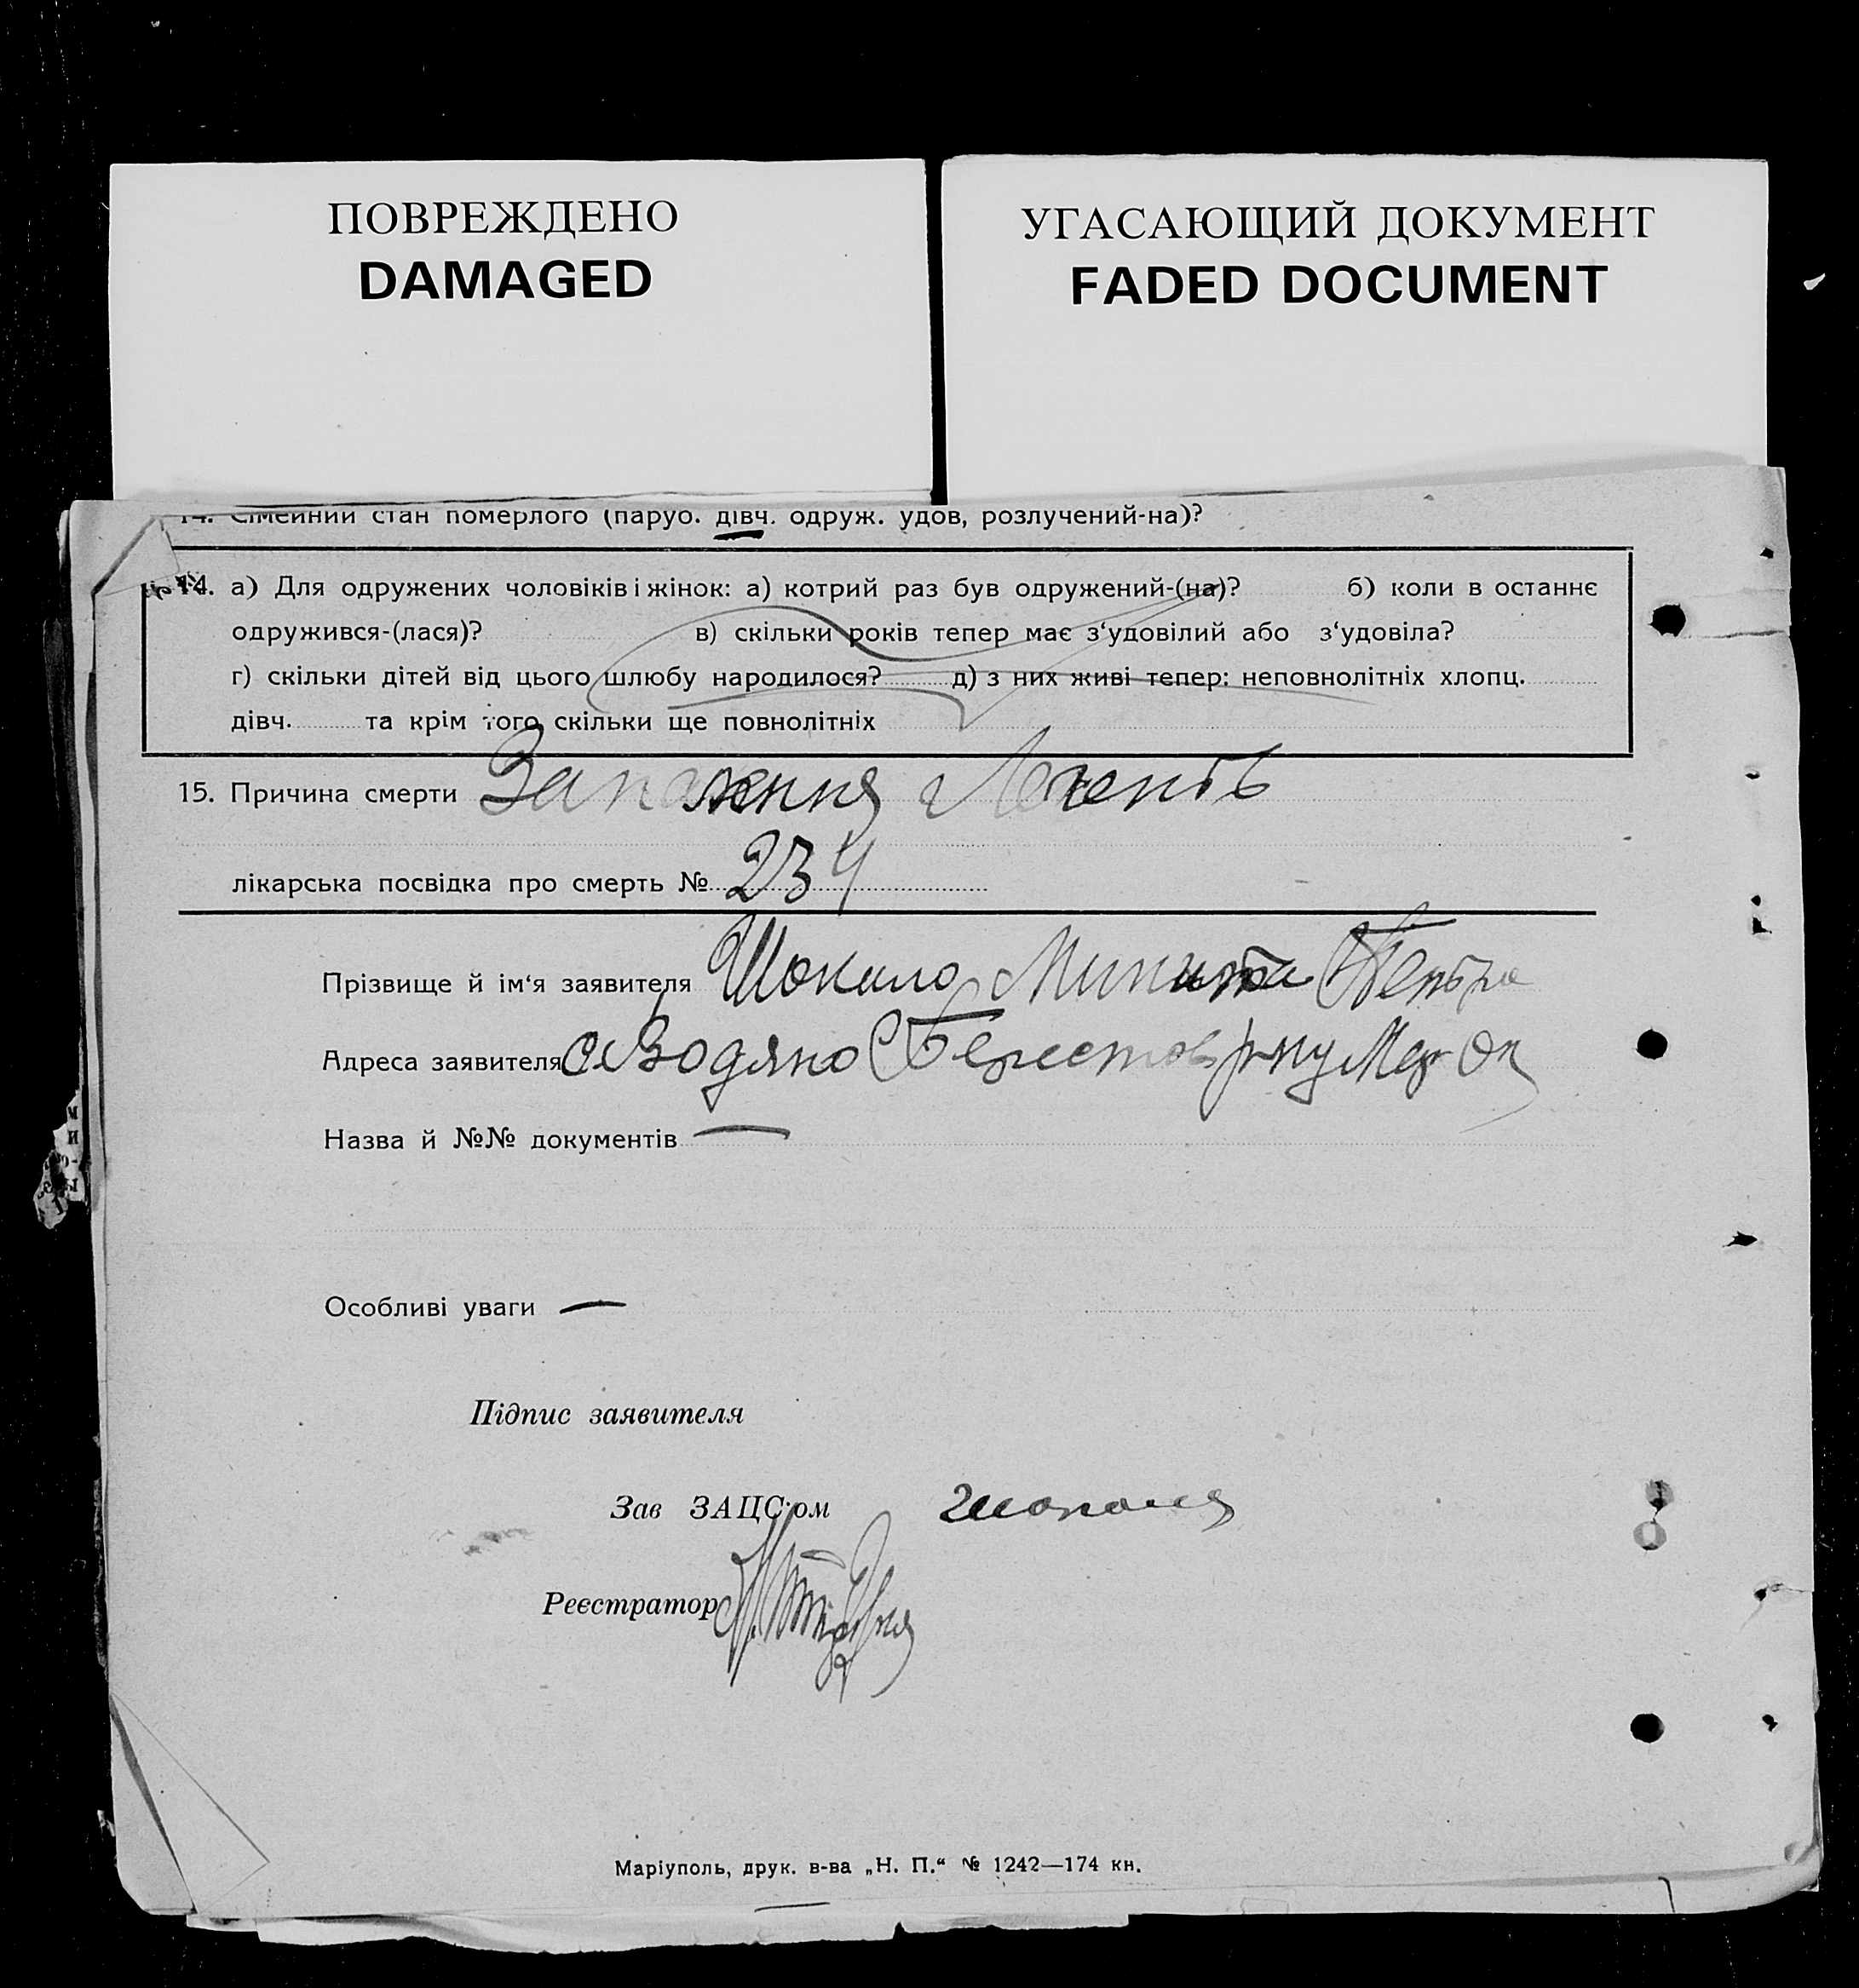 ПОВРЕЖДЕНО
DAMAGED
УГАСАЮЩИЙ ДОКУМЕНТ
FADED DOCUMENT
14. Сімейний стан померлого (паруб. дівч. одруж. удов, розлучений-на)?
14. а) Для одружених чоловіків і жінок: а) котрий раз був одружений-(на)? б) коли в останнє
одружився-(лася)? в) скільки років тепер має з‘удовілий або з‘удовіла?
г) скільки дітей від цього шлюбу народилося? д) з них живі тепер: неповнолітніх хлопц.
дівч. та крім того скільки ще повнолітніх
15. Причина смерти Запалення Легень
лікарська посвідка про смерть № 234
Прізвище й ім‘я заявителя Микита
Адреса заявителя с Водяно
Назва й №№ документів —
Особливі уваги —
Підпис заявителя
Зав ЗАЦС‘ом
Реєстратор
Маріуполь, друк. в-ва „Н. П.“ № 1242—174 кн.